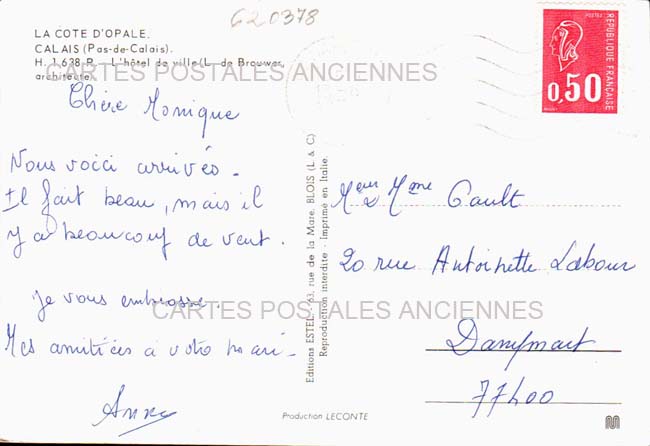 620378
LA COTE D'OPALE.
CALAIS (Pas-de-Calais).
H. 1.638-R. - L'hôtel de ville (L. de Brouwer,
architecte).
CARTES POSTALES ANCIENNES
Chère Monique
Nous voici arrivés.
Il fait beau, mais il
y a beaucoup de vent.
Je vous embrasse.
Mes amitiés à votre mari.
Anny
Editions ESTEL - 63, rue de la Mare, BLOIS (L. & C.)
Reproduction interdite - Imprimé en Italie.
POSTES
REPUBLIQUE FRANÇAISE
0,50
Mr et Mme Gault
20 rue Antoinette Labour
CARTES POSTALES ANCIENNES
Dampmart
77400
Production LECONTE